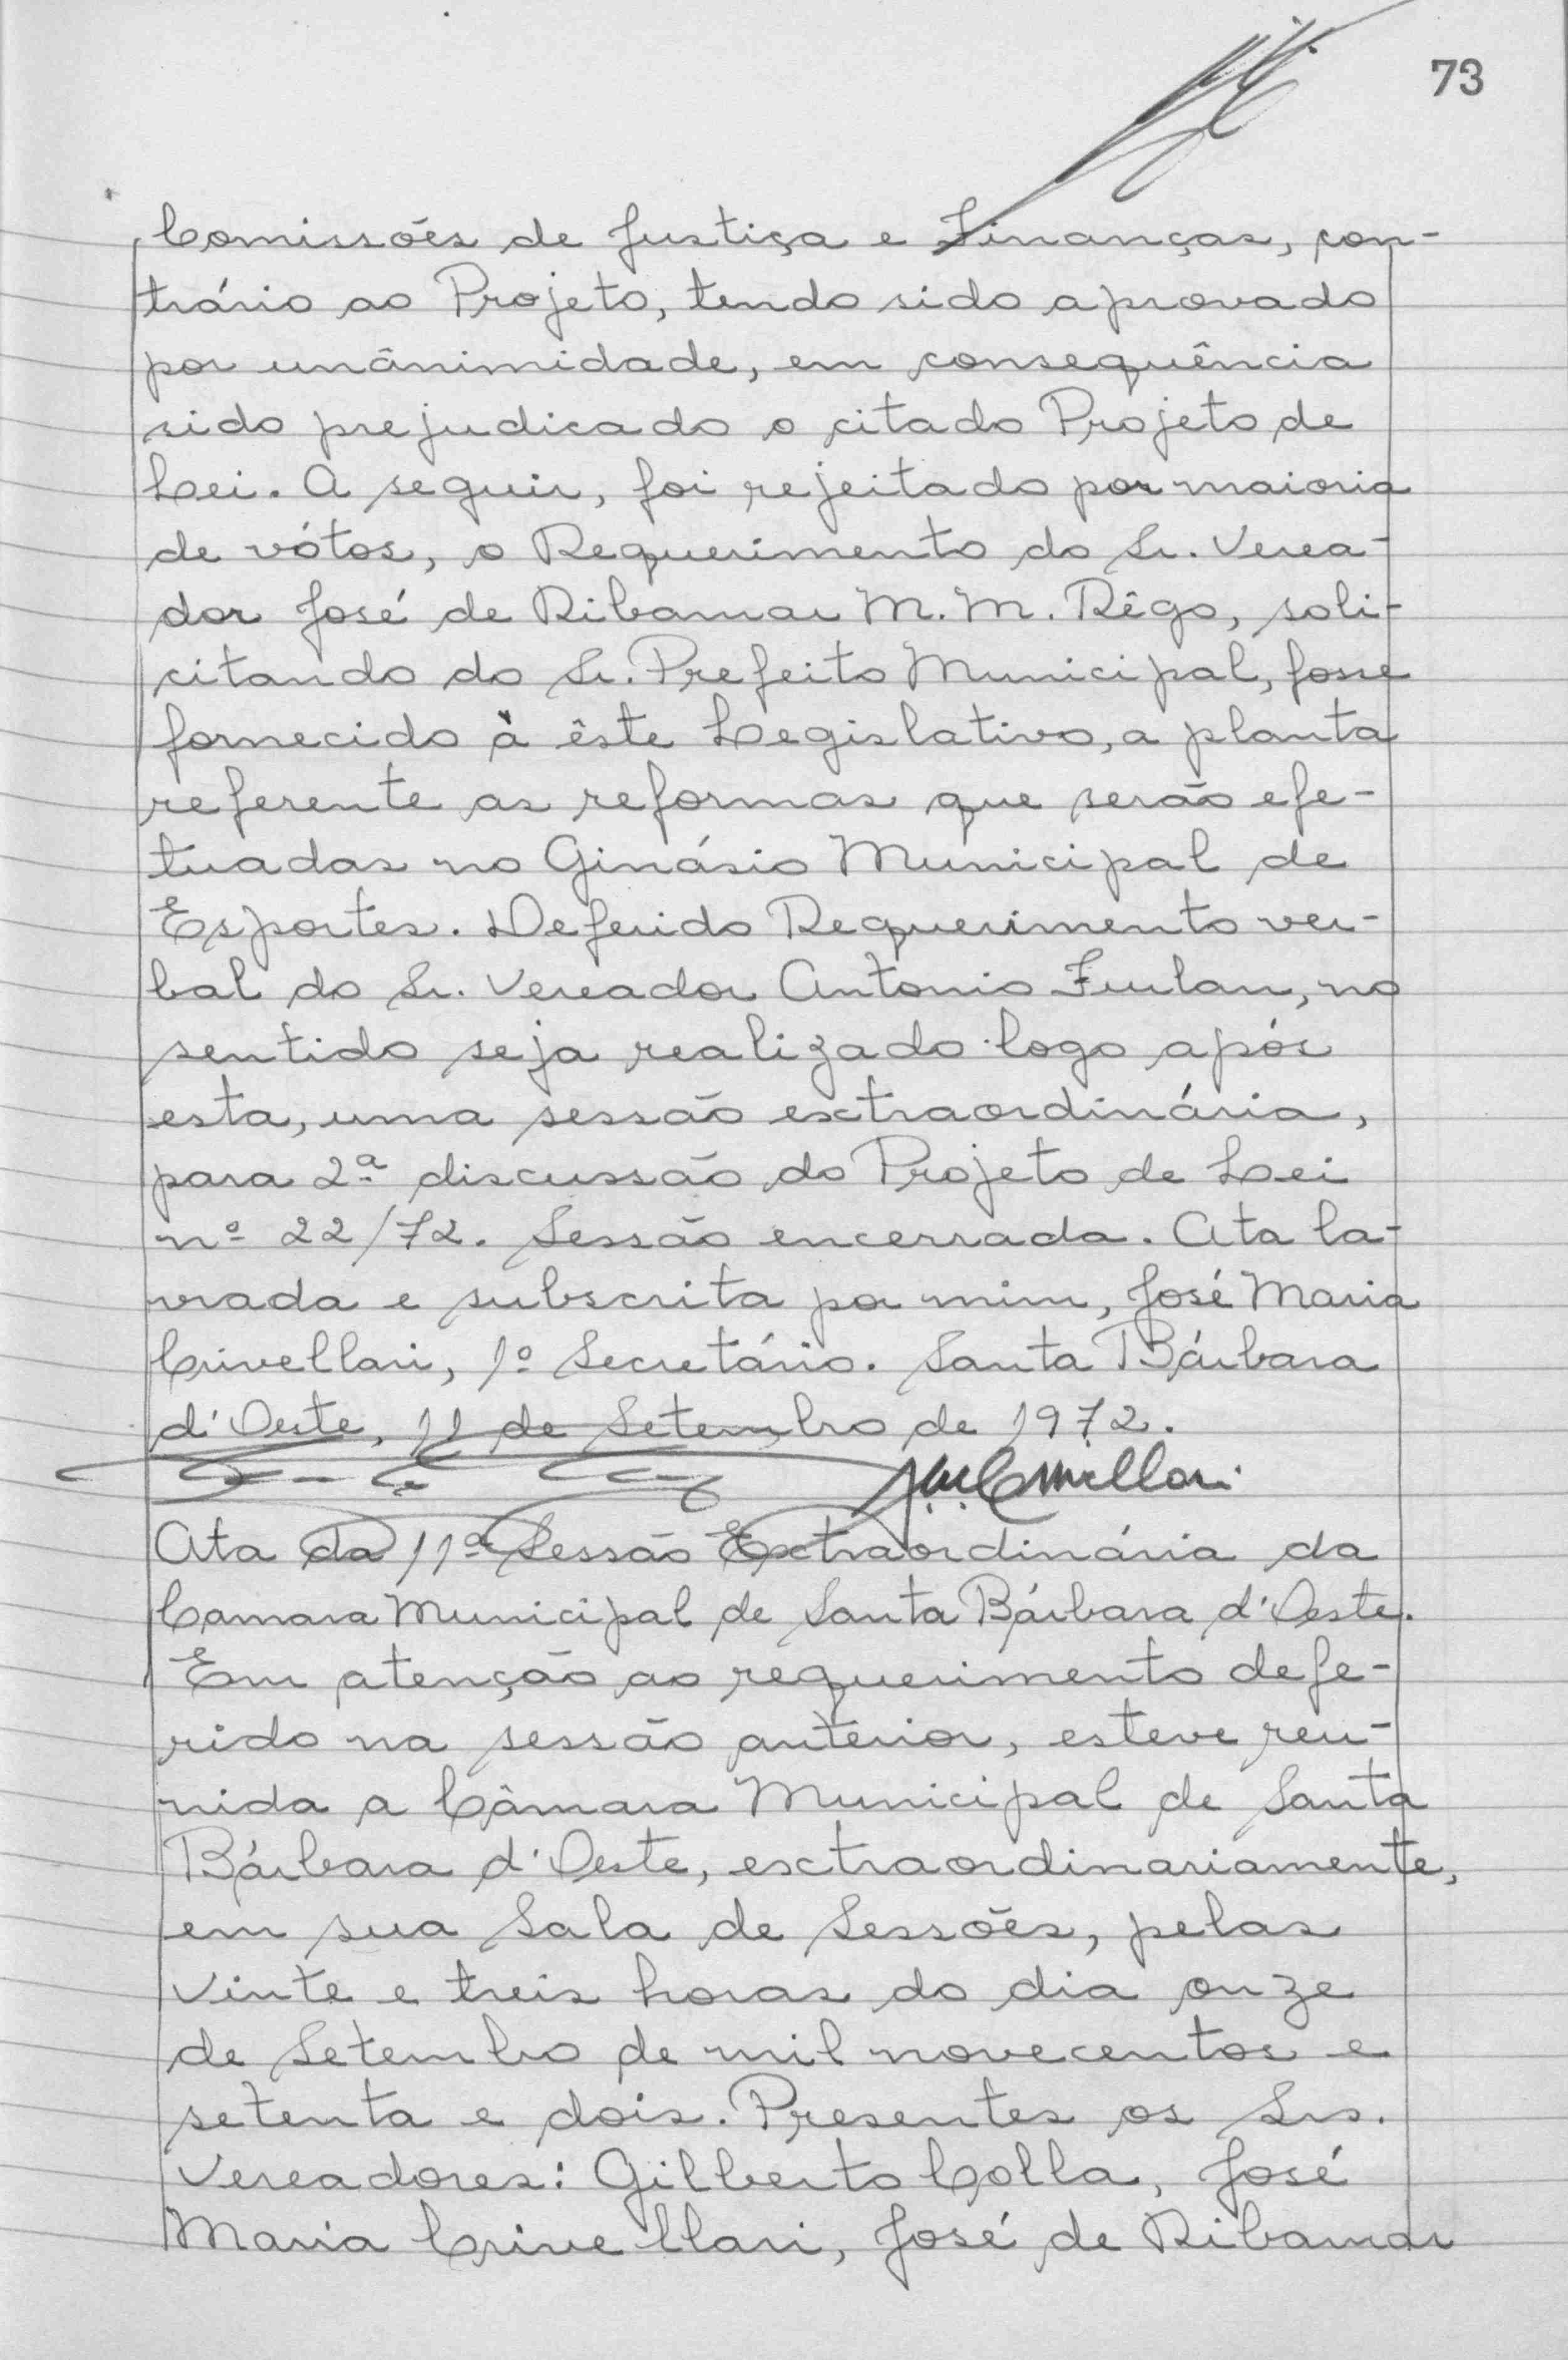 73
Comissões de Justiça e Finanças, con-
trário ao Projeto, tendo sido aprovado
por unânimidade, em consequência
sido prejudicado o citado Projeto de
Lei. A seguir, foi rejeitado por maioria
de vótos, o Requerimento do Sr. Verea-
dor José de Ribamar M. M. Rêgo, soli-
citando do Sr. Prefeito Municipal, fosse
fornecido à êste Legislativo, a planta
referente as reformas que serão efe-
tuadas no Ginásio Municipal de
Esportes. Deferido Requerimento ver-
bal do Sr. Vereador Antonio Furlan, no
sentido seja realizado logo após
esta, uma sessão extraordinária,
para 2ª discussão do Projeto de Lei
nº 22/72. Sessão encerrada. Ata la-
vrada e subscrita por mim, José Maria
Crivellari, 1º Secretário. Santa Bárbara
d'Oeste, 11 de Setembro de 1972.
Ata da 11ª Sessão Extraordinária da
Camara Municipal de Santa Bárbara d'Oeste.
Em atenção ao requerimento defe-
rido na sessão anterior, esteve reu-
nida a Câmara Municipal de Santa
Bárbara d'Oeste, extraordinariamente,
em sua Sala de Sessões, pelas
vinte e treis horas do dia onze
de Setembro de mil novecentos e
setenta e dois. Presentes os Srs.
Vereadores: Gilberto Colla, José
Maria Crivellari, José de Ribamar